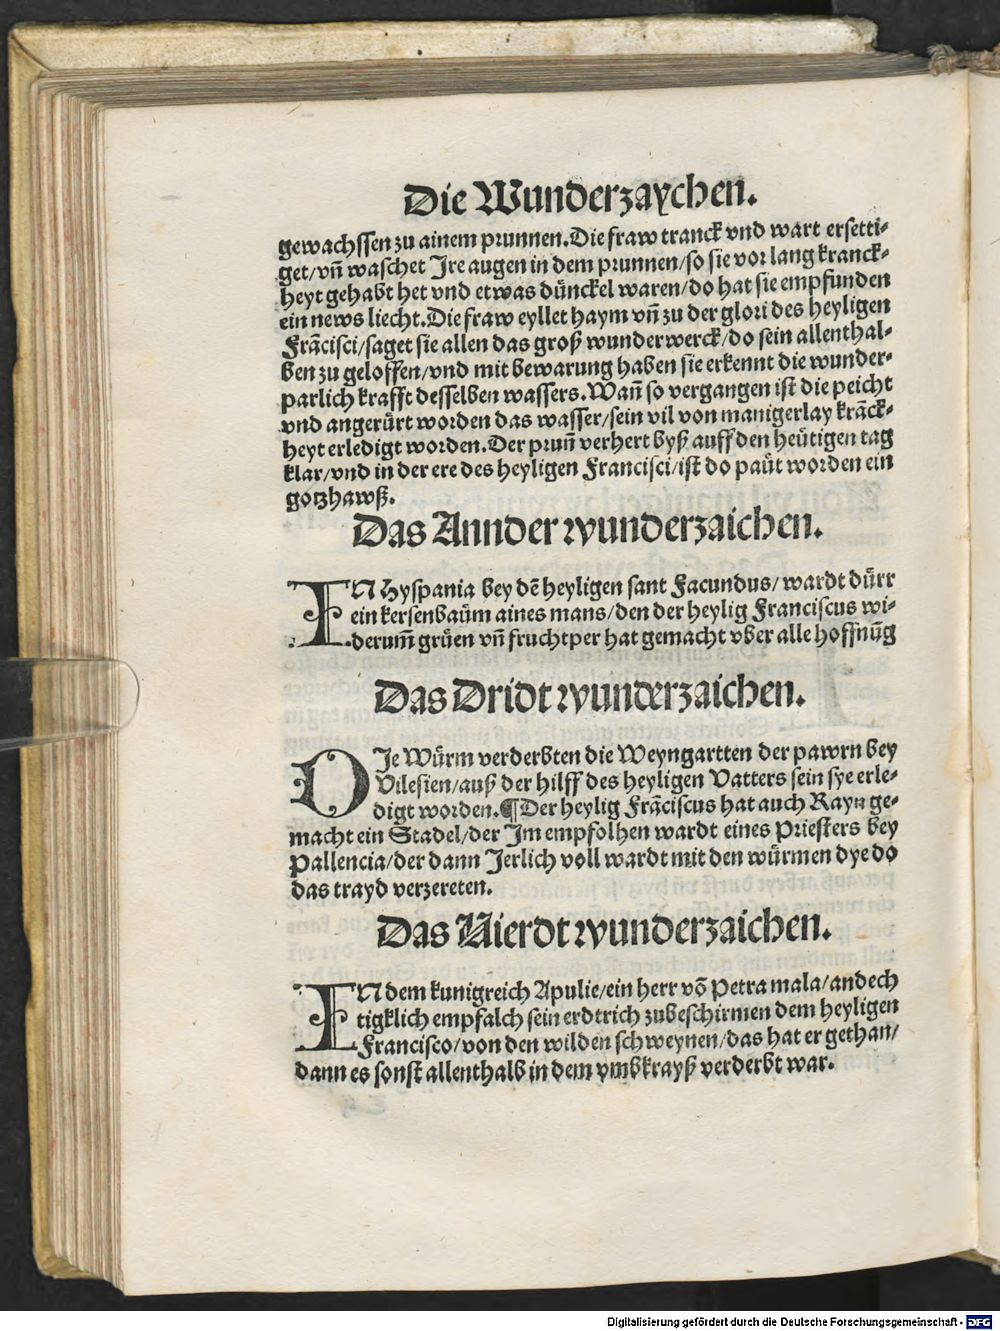 Die Wunderzaychen.
gewachssen zu ainem prunnen. Die fraw tranck vnd wart ersetti-
get/vn̄ waschet Jre augen in dem prunnen/so sie vor lang kranck-
heyt gehabt het vnd etwas dünckel waren/do hat sie empfunden
ein news liecht. Die fraw eyllet haym vn̄ zu der glori des heyligen
Frācisci/saget sie allen das groß wunderwerck/do sein allenthal-
ben zu geloffen/vnd mit bewarung haben sie erkennt die wunder-
parlich krafft desselben wassers. Wan̄ so vergangen ist die peicht
vnd angerürt worden das wasser/sein vil von manigerlay krāck-
heyt erledigt worden. Der prun̄ verhert byß auff den heütigen tag
klar/vnd in der ere des heyligen Francisci/ist do paüt worden ein
gotzhawß.
Das Annder wunderzaichen.
IN Hyspania bey dē heyligen sant Facundus/wardt dürr
ein kersenbaüm aines mans/den der heylig Franciscus wi-
derum̄ grüen vn̄ fruchtper hat gemacht vber alle hoffnūg
Das Dridt wunderzaichen.
DJe Würm verderbten die Weyngartten der pawrn bey
Vilesien/auß der hilff des heyligen Vatters sein sye erle-
digt worden. ¶ Der heylig Frāciscus hat auch Rayn ge-
macht ein Stadel/der Jm empfolhen wardt eines Priesters bey
Pallencia/der dann Jerlich voll wardt mit den würmen dye do
das trayd verzereten.
Das Vierdt wunderzaichen.
IN dem kunigreich Apulie/ein herr vō Petra mala/andech
tigklich empfalch sein erdtrich zubeschirmen dem heyligen
Francisco/von den wilden schweynen/das hat er gethan/
dann es sonst allenthalb in dem vmbkrayß verderbt war.
Digitalisierung gefördert durch die Deutsche Forschungsgemeinschaft - DFG